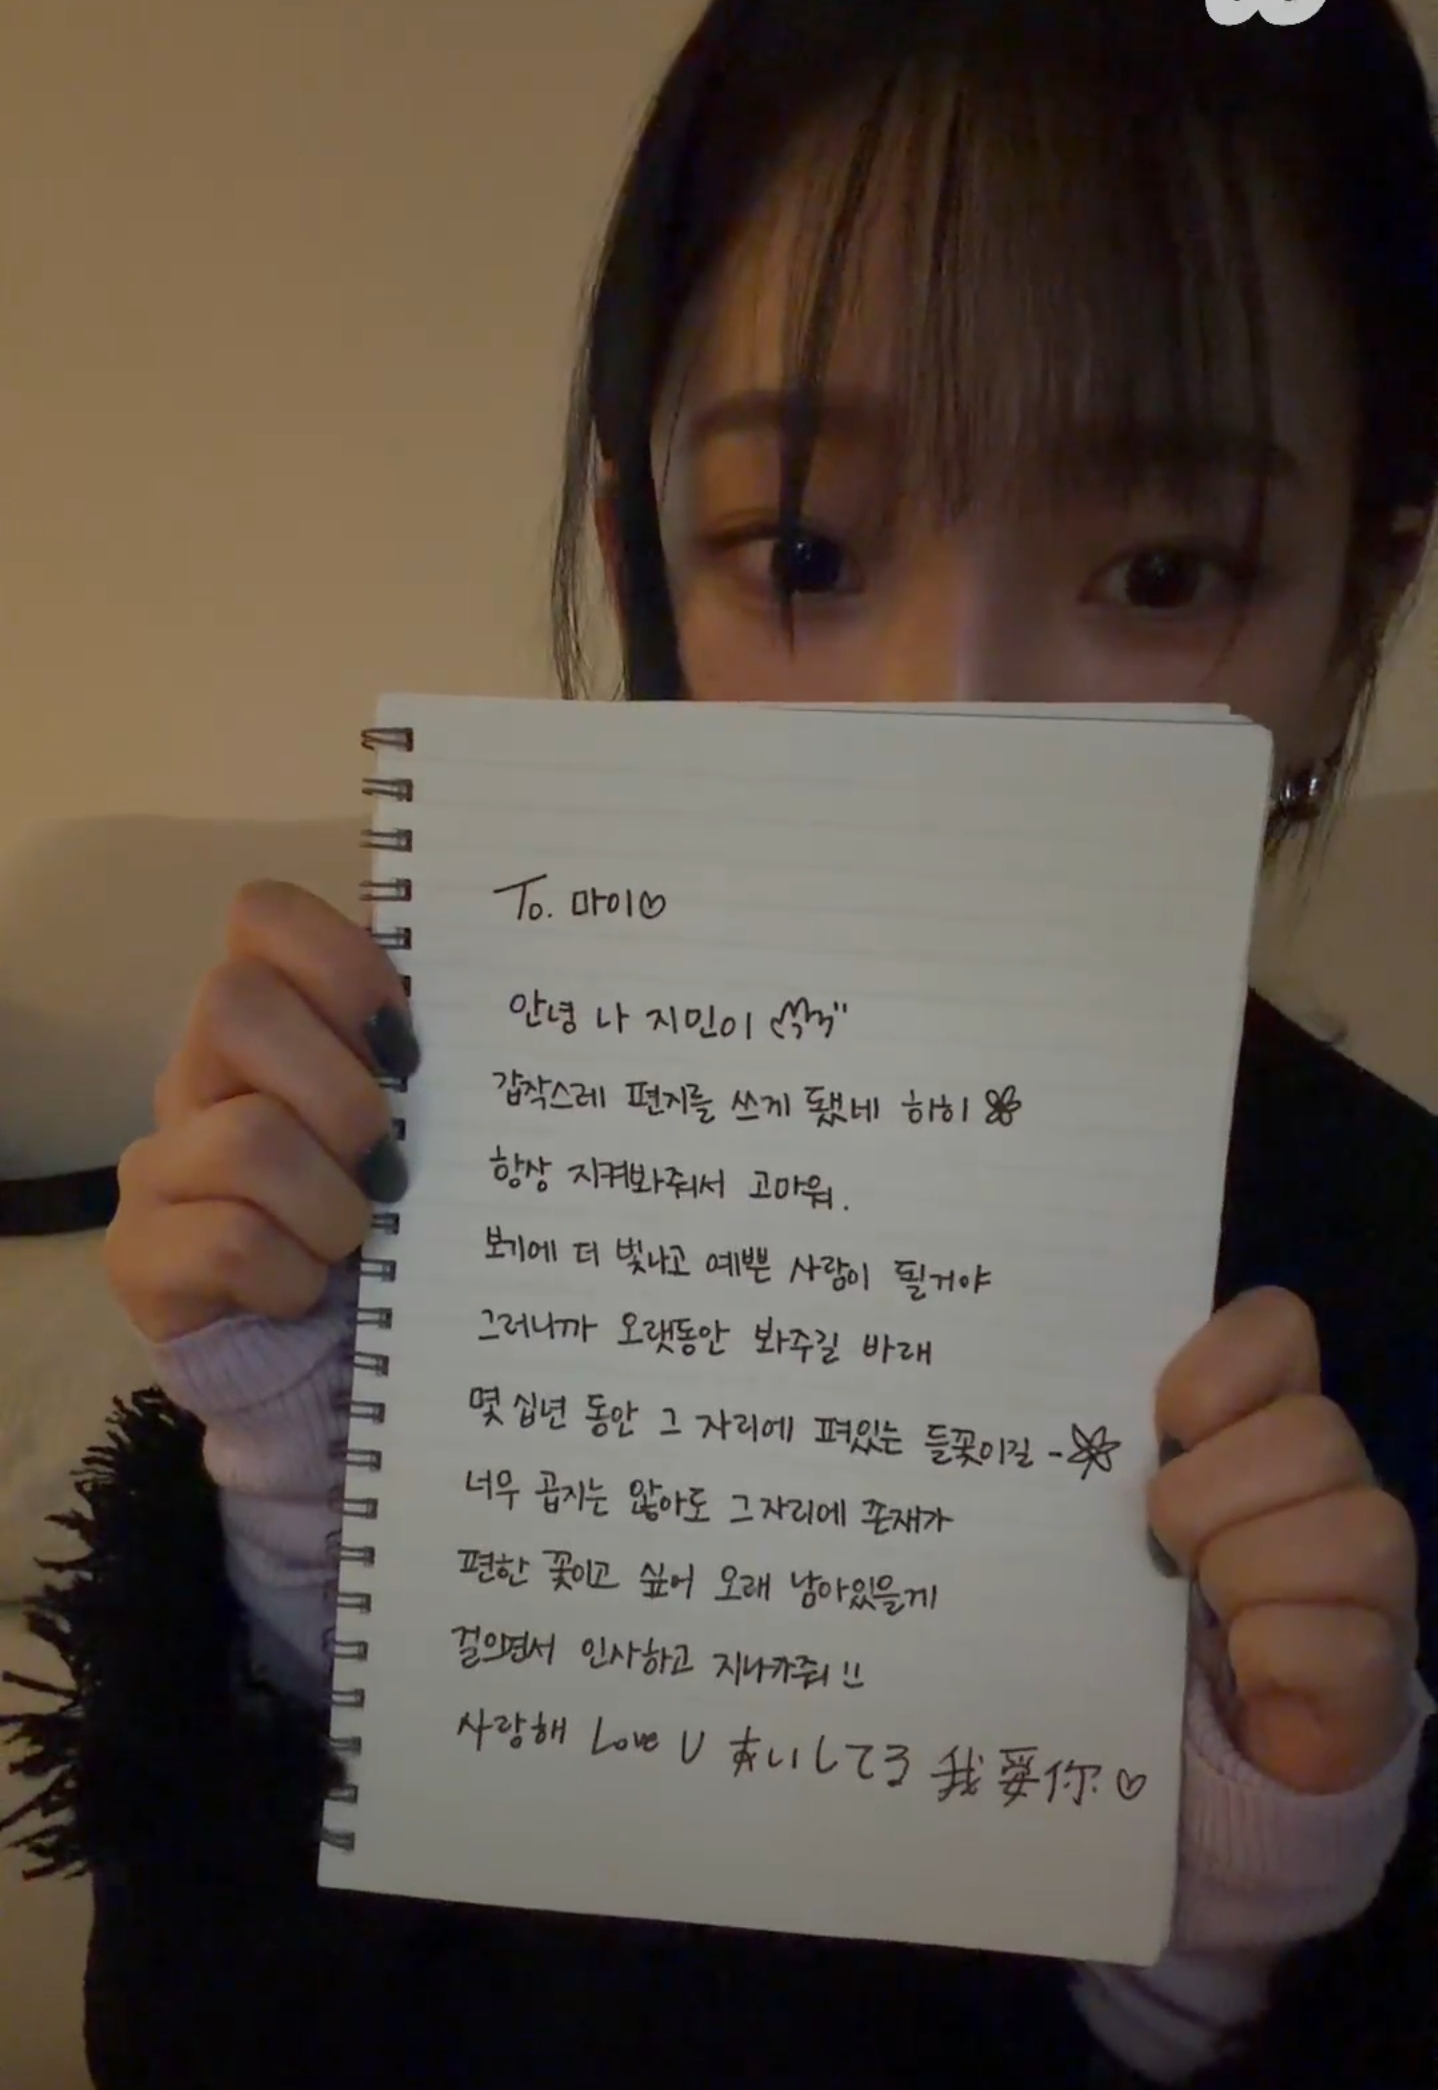 To. 마이♡
안녕 나 지민이
갑작스레 편지를 쓰게 됐네 하히
항상 지켜봐줘서 고마워.
보기에 더 빛나고 예쁜 사람이 될거야
그러니까 오랫동안 봐주길 바래
몇 십년 동안 그 자리에 펴있는 들꽃이길 -
너무 곱지는 않아도 그 자리에 존재가
편한 꽃이고 싶어 오래 남아있을게
걸으면서 인사하고 지나가줘!!
사랑해 Love U あいしてる 我爱你♡